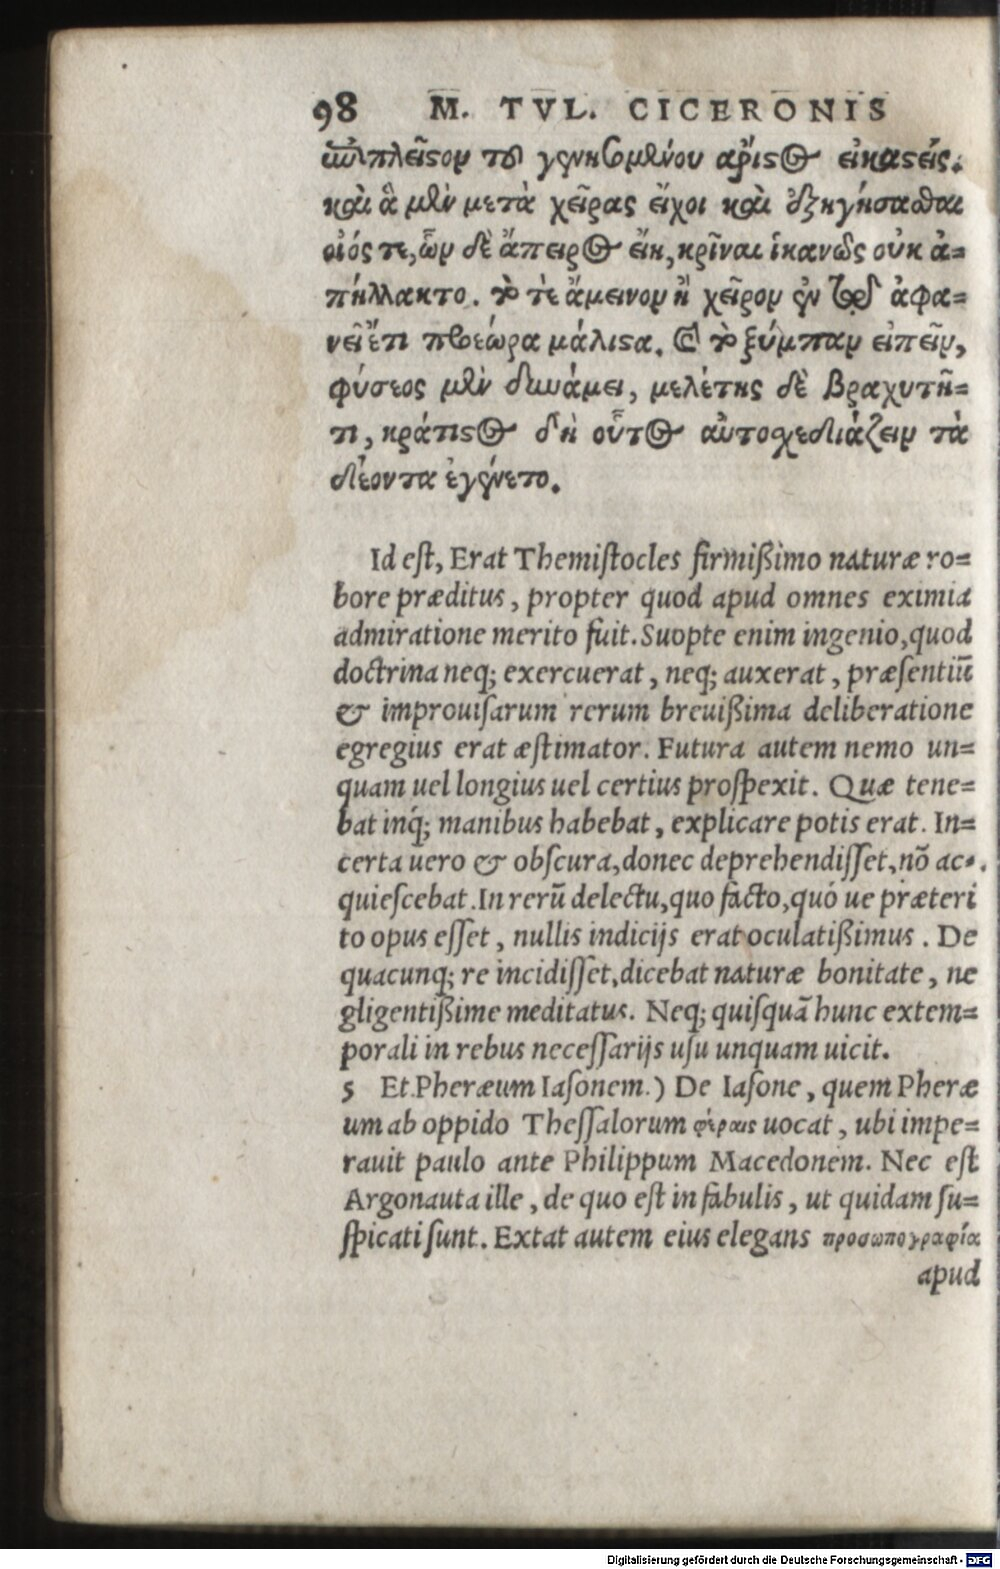 98 M. TVL. CICERONIS
πλεῖςον τοῦ γενησομένου ἄριςος εἰκαςείς.
καὶ ἃ μὲν μετὰ χεῖρας ἔχοι καὶ ἐξηγήσασθαι
οἷός τε, ὧν δὲ ἄπειρος εἴη, κρῖναι ἱκανῶς οὐκ ἀ=
πήλλακτο. τό τε ἄμεινον ἢ χεῖρον ἐν τῷ ἀφα=
νεῖ ἔτι προεώρα μάλιςα. καὶ τὸ ξύμπαν εἰπεῖν,
φύσεος μὲν δυνάμει, μελέτης δὲ βραχυτῆ=
τι, κράτιςος δὴ οὗτος αὐτοσχεδιάζειν τὰ
δέοντα ἐγένετο.
Id est, Erat Themistocles firmißimo naturæ ro=
bore præditus, propter quod apud omnes eximia
admiratione merito fuit. Suopte enim ingenio, quod
doctrina neq; exercuerat, neq; auxerat, præsentiũ
& improuisarum rerum breuißima deliberatione
egregius erat æstimator. Futura autem nemo un=
quam uel longius uel certius prospexit. Quæ tene=
bat inq́; manibus habebat, explicare potis erat. In=
certa uero & obscura, donec deprehendisset, nõ ac=
quiescebat. In rerũ delectu, quo facto, quó ue præteri
to opus esset, nullis indicijs erat oculatißimus. De
quacunq; re incidisset, dicebat naturæ bonitate, ne
gligentißime meditatus. Neq; quisquã hunc extem=
porali in rebus necessarijs usu unquam uicit.
5 Et Pheræum Iasonem.) De Iasone, quem Pheræ
um ab oppido Thessalorum φέραις uocat, ubi impe=
rauit paulo ante Philippum Macedonem. Nec est
Argonauta ille, de quo est in fabulis, ut quidam su=
spicati sunt. Extat autem eius elegans προσωπογραφία
apud
Digitalisierung gefördert durch die Deutsche Forschungsgemeinschaft - DFG